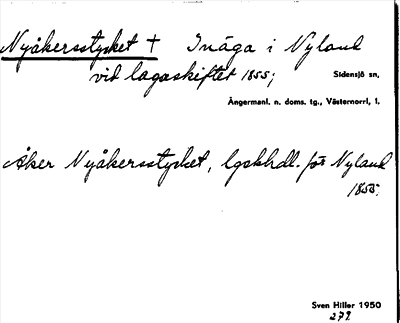 Nyåkersstycket † Inäga i Nyland
vid lagaskiftet 1855;
Sidensjö sn,
Ångermanl. n. doms. tg., Västernorrl, l.
Åker Nyåkersstycket, lgskhdl. för Nyland
1855.
Sven Hiller 1950
279.